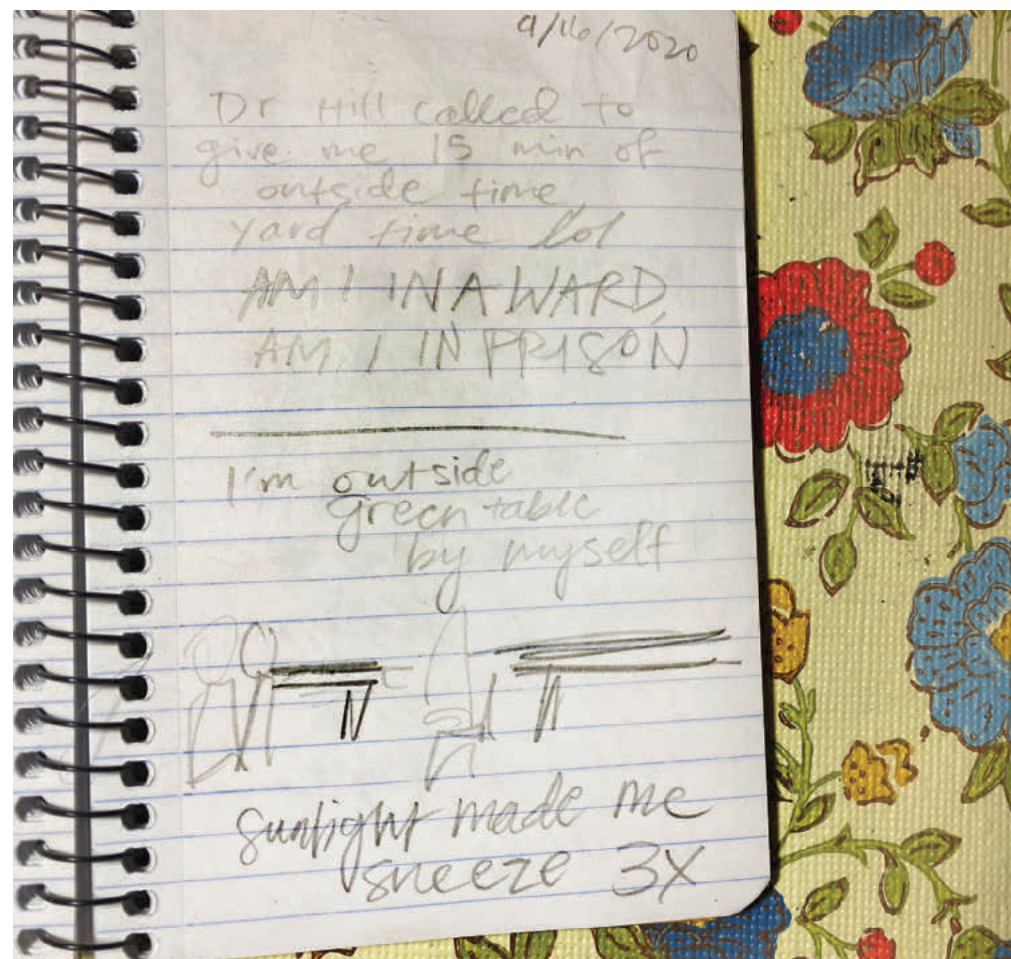 9/16/2020
Dr Hill called to
give me 15 min of
outside time
yard time lol
AM I IN A WARD,
AM I IN PRISON
I'm outside
green table
by myself
sunlight made me
sneeze 3X